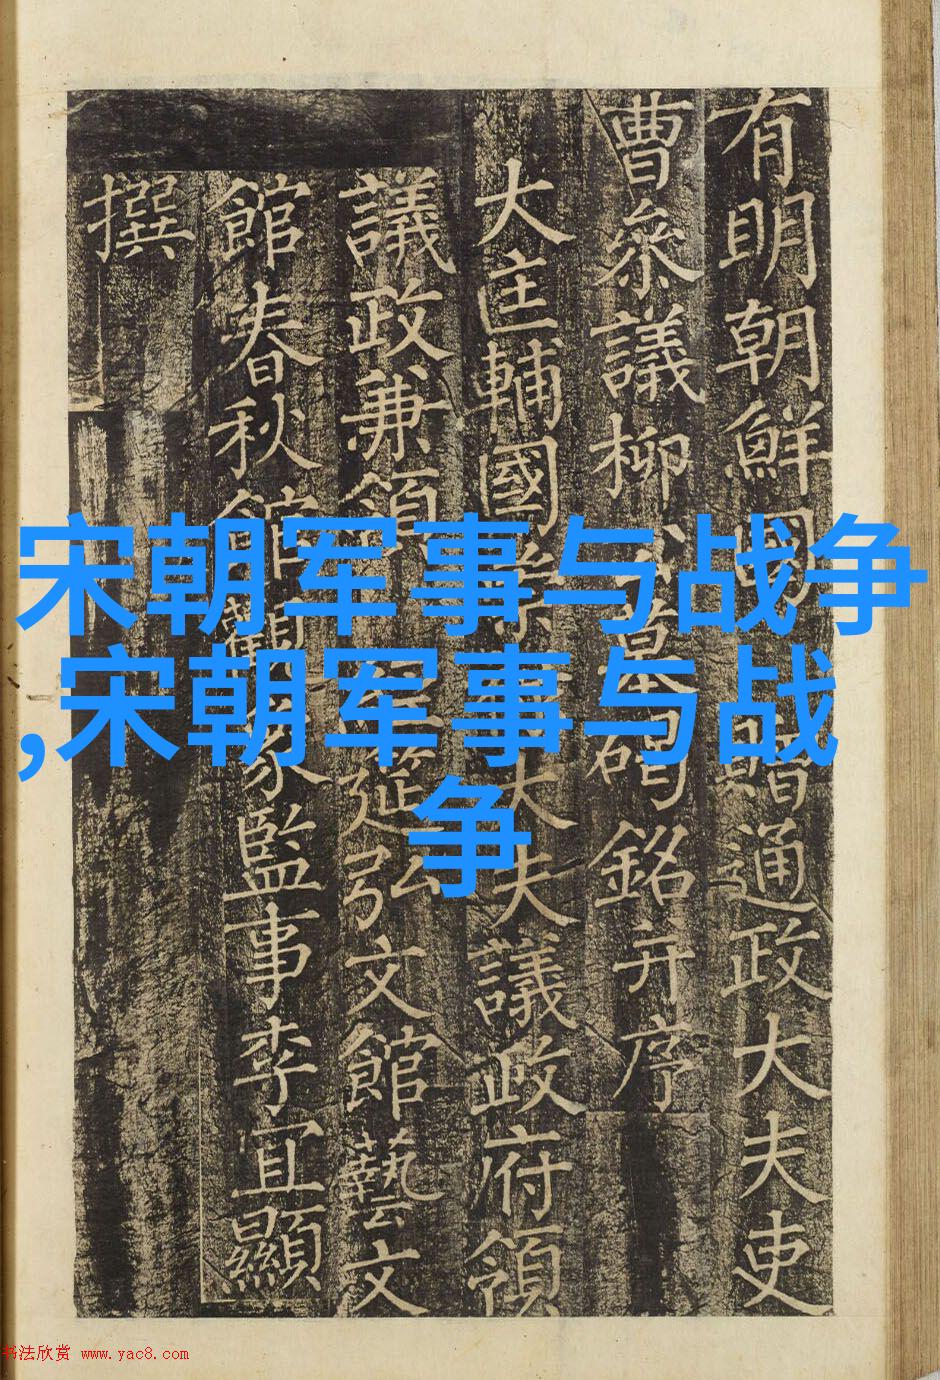 有明朝鮮國贈通政大夫吏
曹叅議柳公墓碣銘并序
大匡輔國崇大夫議政府領
議政兼領經筵弘文館藝文
館春秋館觀象監事李宜顯
撰
宋朝军事与战争
,宋朝军事与战
争
书法欣赏 www.yac8.com